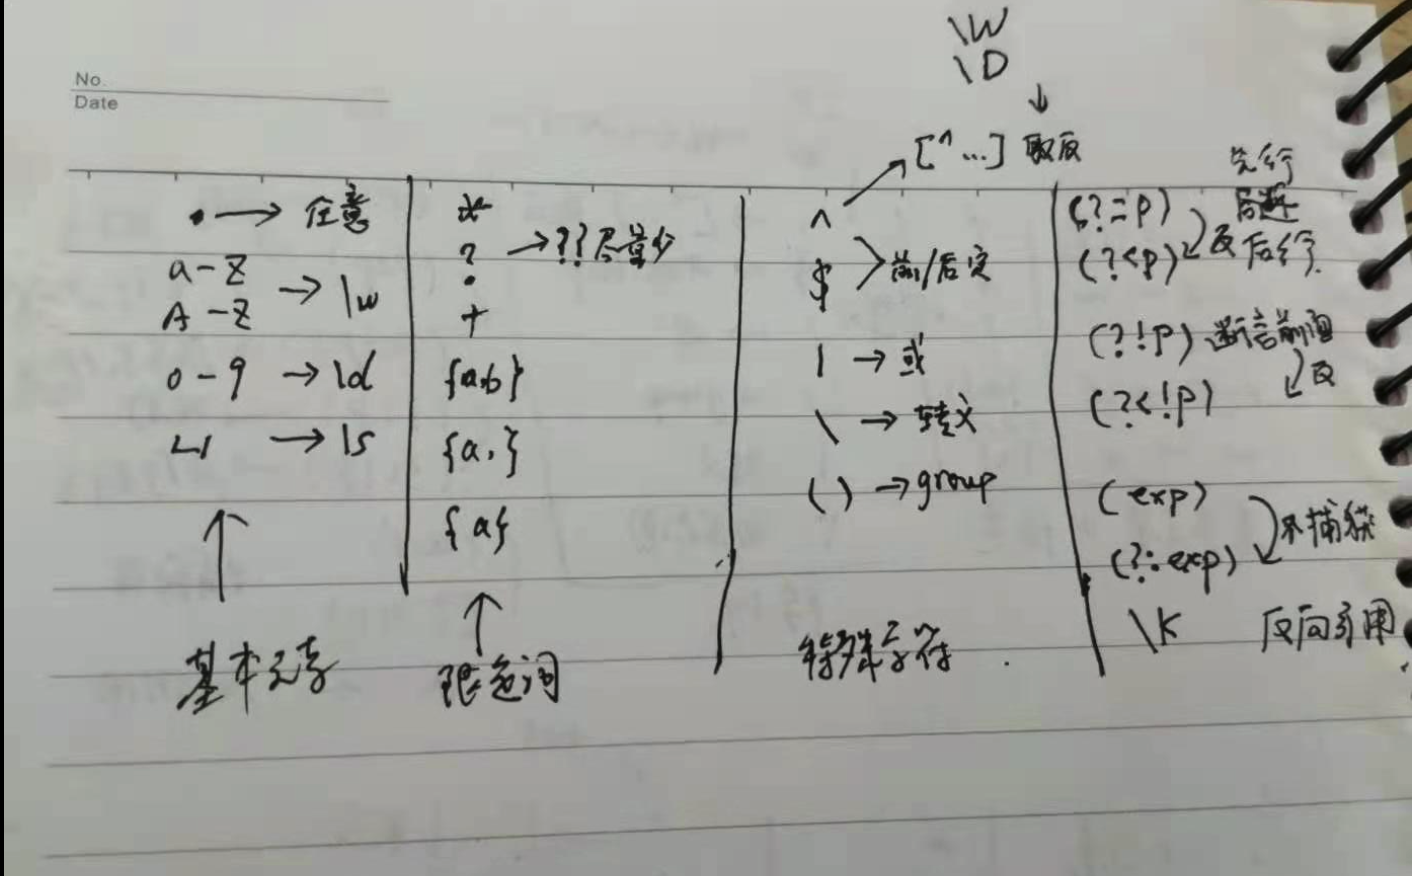 No.
Date
\W
\D
↓
[^...] 取反
. → 任意
a-z
A-Z → \w
0-9 → \d
→ \s
基本元素
*
? → ?? 尽量少
+
{a,b}
{a,}
{a}
限定词
^
$ 前/后定
| → 或
\ → 转义
( ) → group
特殊字符
先行
(?=p)
(?<p) 反 后行
(?!p) 断言前面
(?<!p) 反
(exp)
(?:exp) 不捕获
\K 反向引用